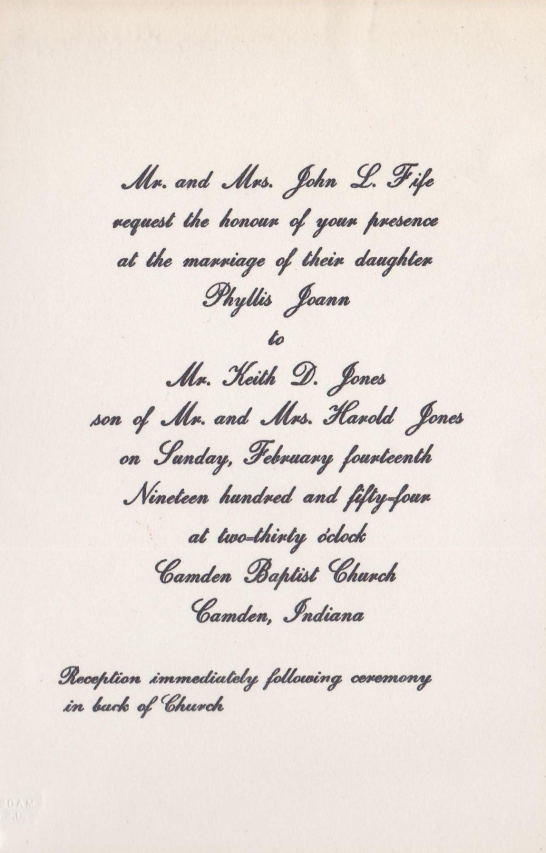 Mr. and Mrs. John L. Fife
request the honour of your presence
at the marriage of their daughter
Phyllis Joann
to
Mr. Keith D. Jones
son of Mr. and Mrs. Harold Jones
on Sunday, February fourteenth
Nineteen hundred and fifty-four
at two-thirty o'clock
Camden Baptist Church
Camden, Indiana
Reception immediately following ceremony
in back of Church